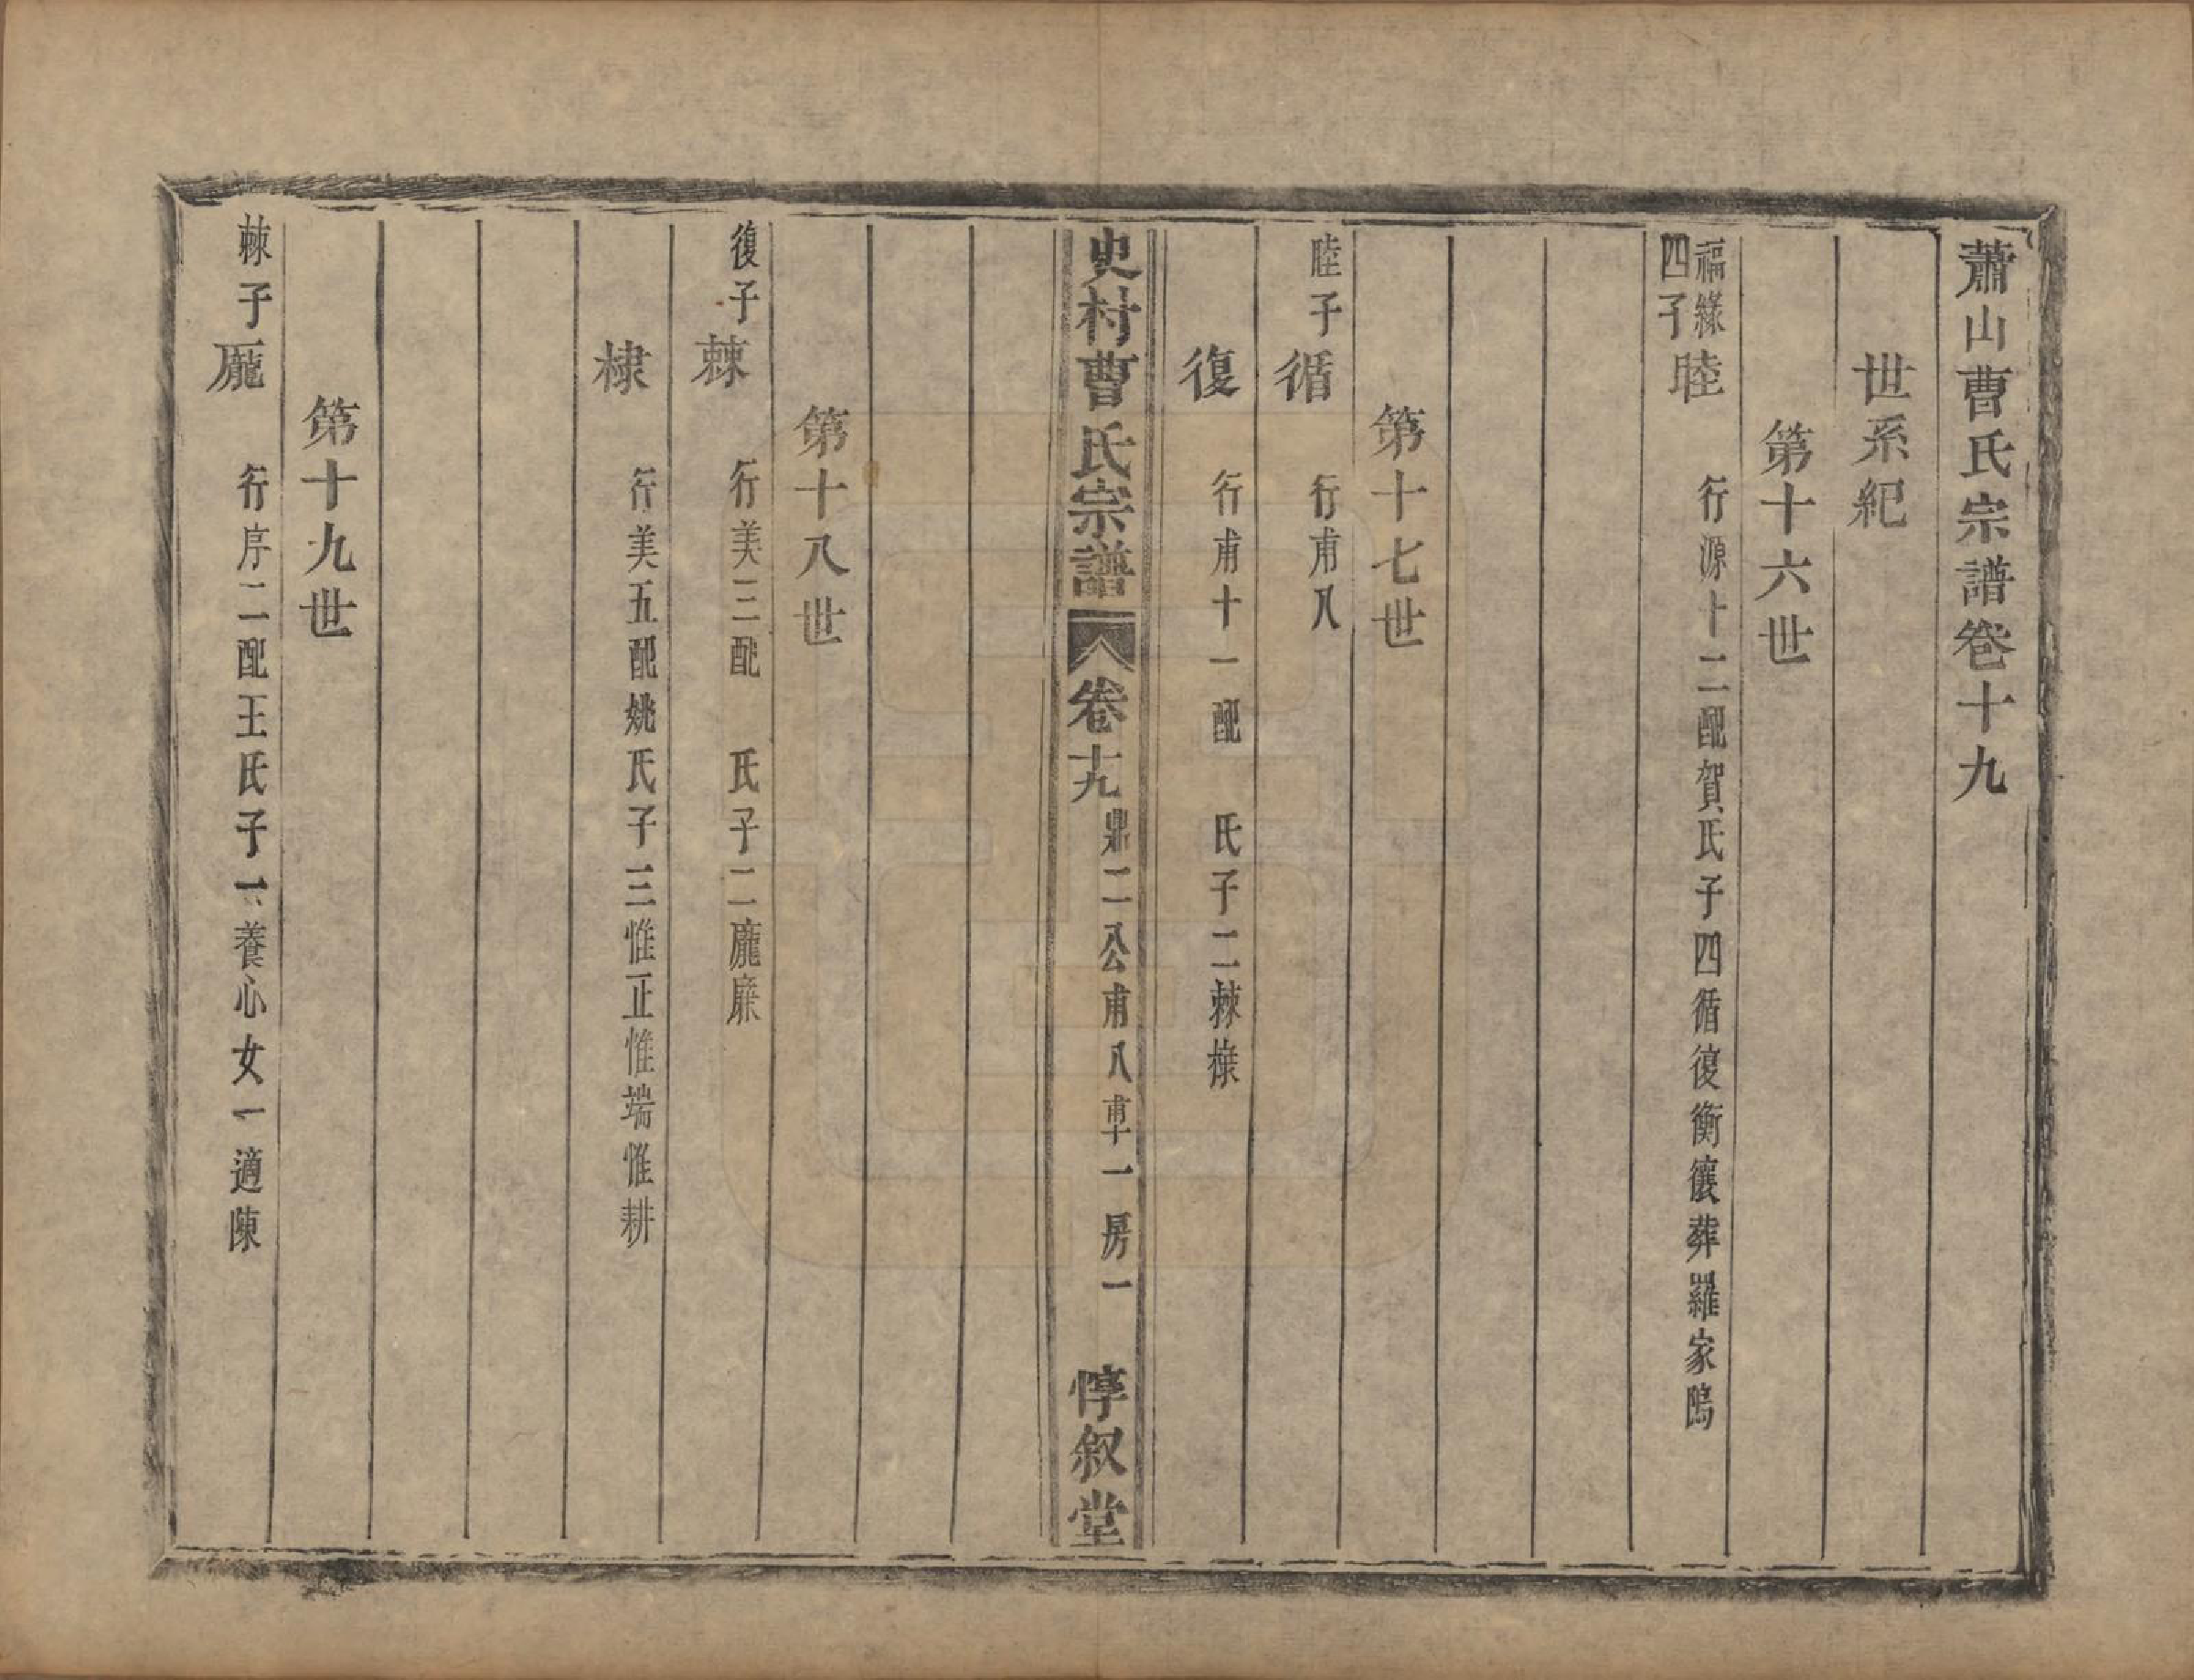 蕭山曹氏宗譜卷十九
世系紀
第十六世
福緣四子 睦 行源十二配賀氏子四循復衡儴葬羅家塢
第十七世
睦子 循 行甫八
復 行甫十一配 氏子二棘
史村曹氏宗譜 卷十九 鼎二公甫八甫十一房一 惇叙堂
第十八世
復子 棘 行美三配 氏子二龐
棣 行美五配姚氏子三惟正惟端惟耕
第十九世
棘子 龐 行序二配王氏子一養心女一適陳